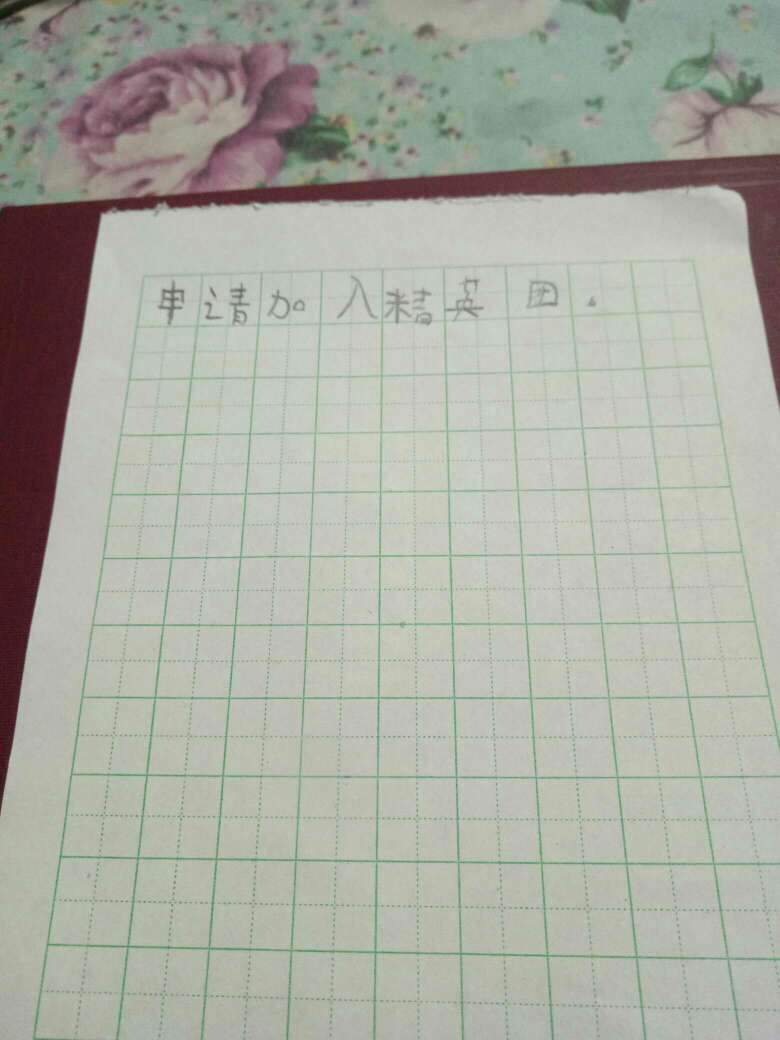 申请加入精英团。